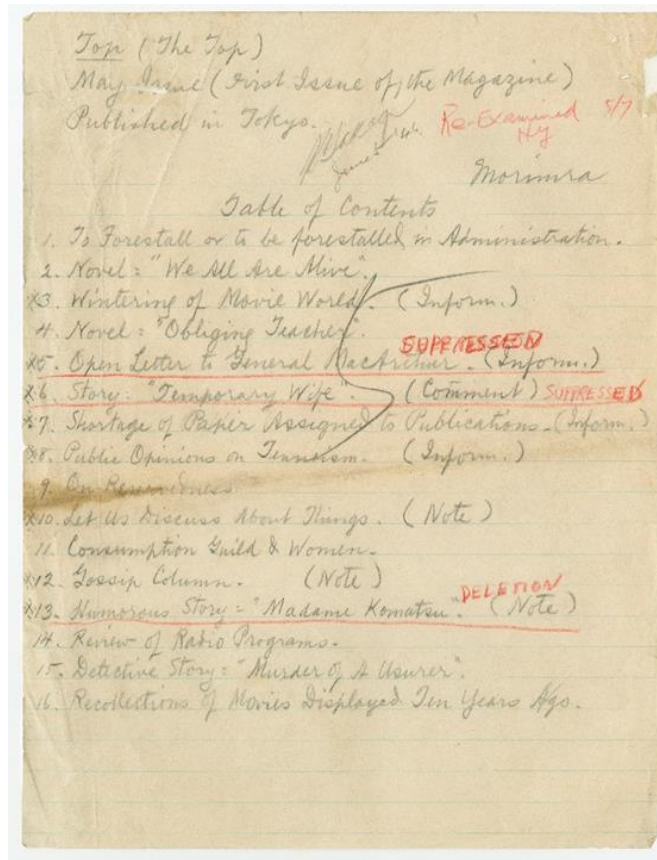 Top (The Top)
May Issue (First Issue of the Magazine)
Published in Tokyo.
Re-Examined 5/7
Morimra
Table of Contents
1. To Forestall or to be forestalled in Administration.
2. Novel = "We All Are Alive".
x3. Wintering of Movie World. (Inform.)
4. Novel = "Obliging Teacher".
SUPPRESSED
x5. Open Letter to General MacArthur. (Inform.)
x6. Story: "Temporary Wife". (Comment) SUPPRESSED
x7. Shortage of Paper Assigned to Publications. (Inform.)
x8. Public Opinions on Tennoism. (Inform.)
9. On Reservedness
x10. Let Us Discuss About Things. (Note)
11. Consumption Guild & Women.
x12. Gossip Column. (Note)
DELETION
x13. Humorous Story = "Madame Komatsu". (Note)
14. Review of Radio Programs.
15. Detective Story = "Murder of A Usurer".
16. Recollections of Movies Displayed Ten Years Ago.